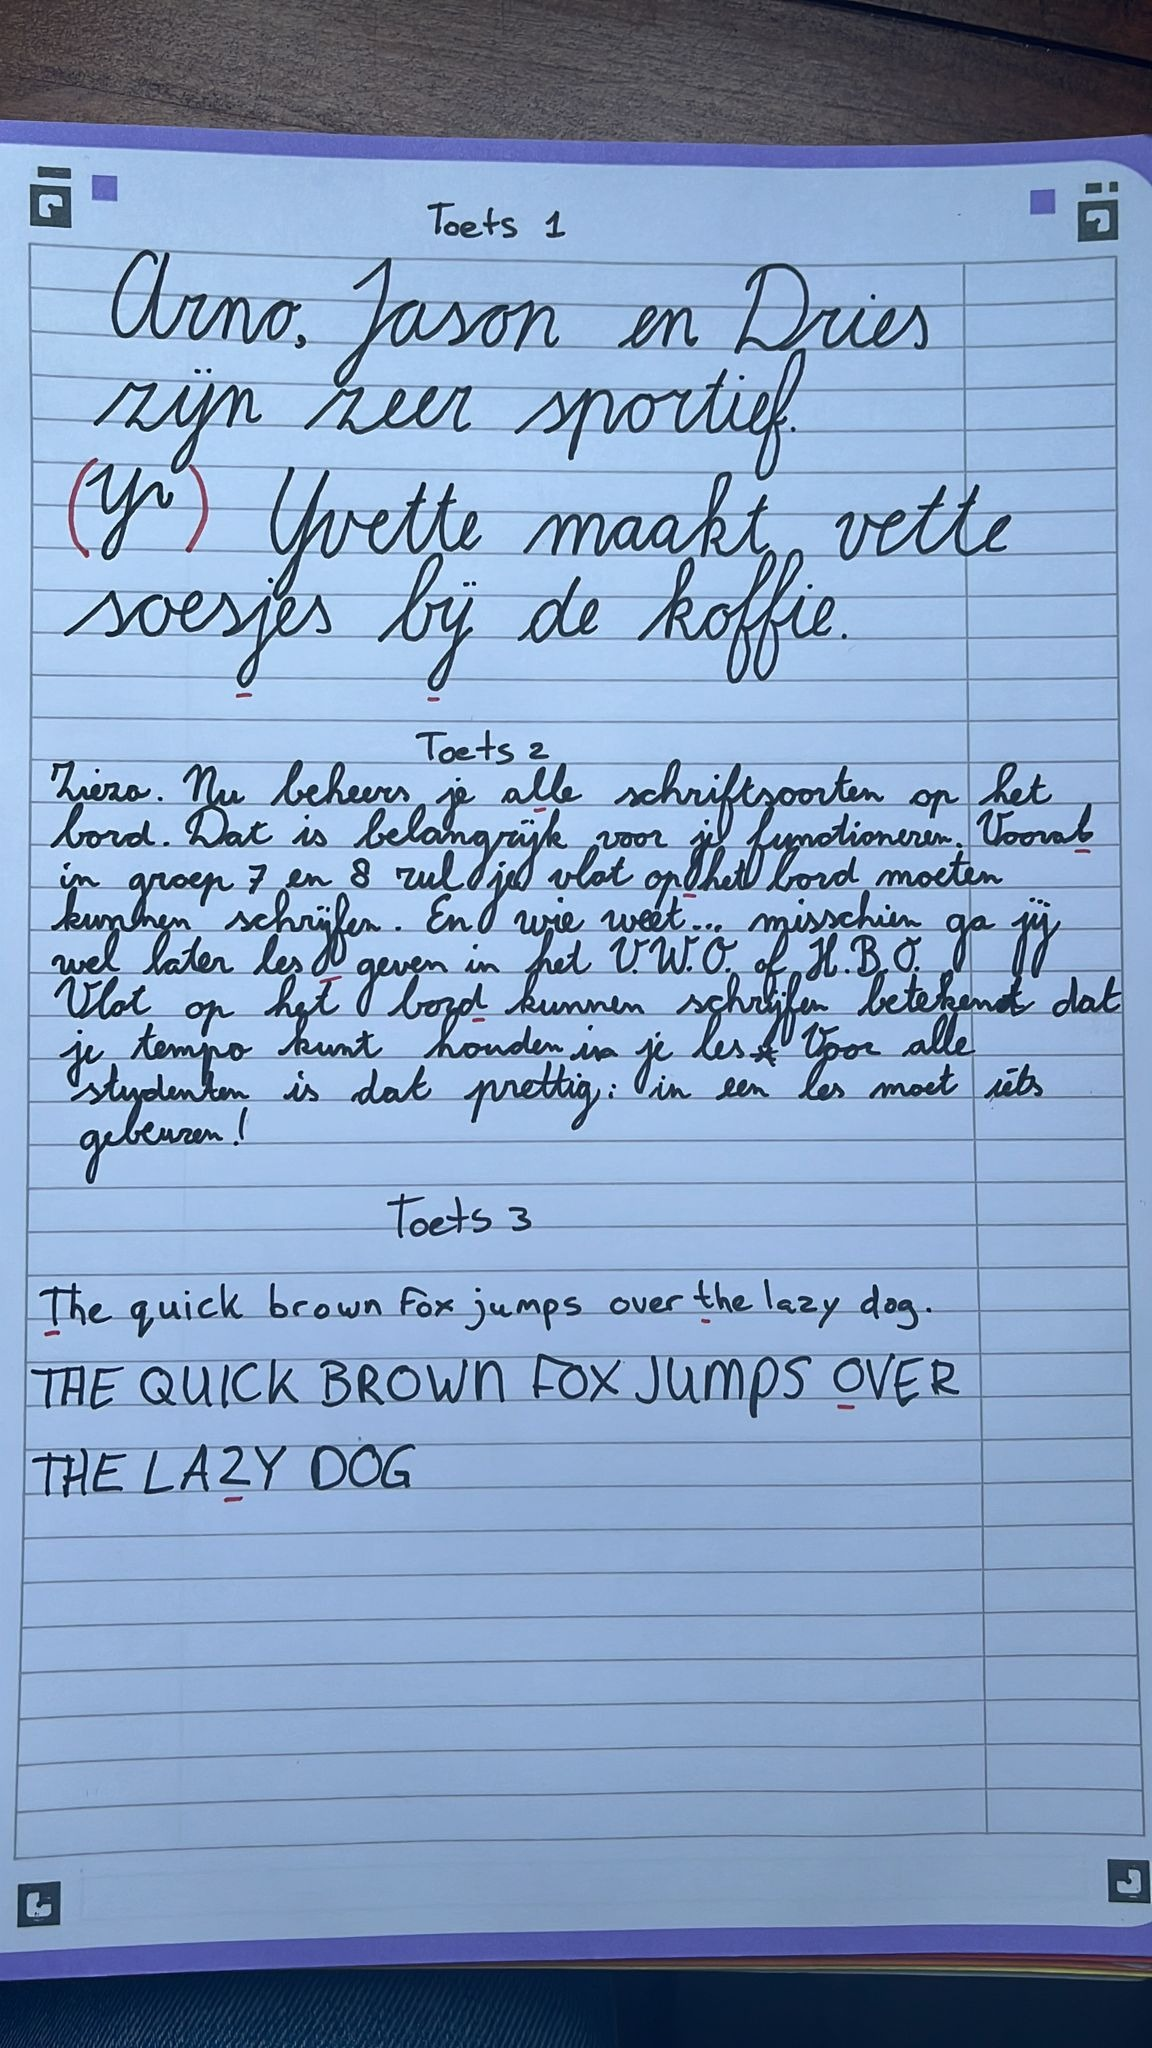 Toets 1
Arno, Jason en Dries
zijn zeer sportief.
(Yv) Yvette maakt vette
soesjes bij de koffie.
Toets 2
Ziezo. Nu beheers je alle schriftsoorten op het
bord. Dat is belangrijk voor je functioneren. Vooral
in groep 7 en 8 zul je vlot op het bord moeten
kunnen schrijfen. En wie weet... misschien ga jij
wel later les geven in het V.W.O. of H.B.O.
Vlot op het bord kunnen schrijfen betekend dat
je tempo kunt houden in je les. Voor alle
studenten is dat prettig: in een les moet iets
gebeuren!
Toets 3
The quick brown fox jumps over the lazy dog.
THE QUICK BROWN FOX JUMPS OVER
THE LAZY DOG